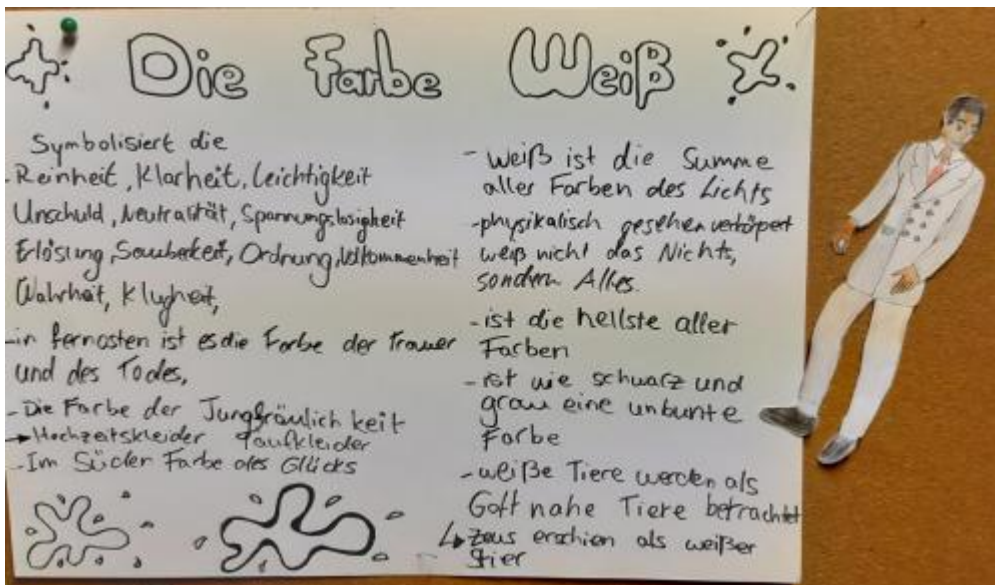 Die Farbe Weiß
Symbolisiert die
- Reinheit, Klarheit, Leichtigkeit
Unschuld, Neutralität, Spannungslosigkeit
Erlösung, Sauberkeit, Ordnung, Vollkommenheit
Wahrheit, Klugheit,
- in fernosten ist es die Farbe der Trauer
und des Todes,
- Die Farbe der Jungfräulich keit
→ Hochzeitskleider Taufkleider
- Im Süden Farbe des Glücks
- weiß ist die Summe
aller Farben des Lichts
- physikalisch gesehen verkörpert
weiß nicht das Nichts,
sondern Alles.
- ist die hellste aller
Farben
- ist wie schwarz und
grau eine unbunte
Farbe
- weiße Tiere werden als
Gott nahe Tiere betrachtet
↳ Zeus erschien als weißer
Stier